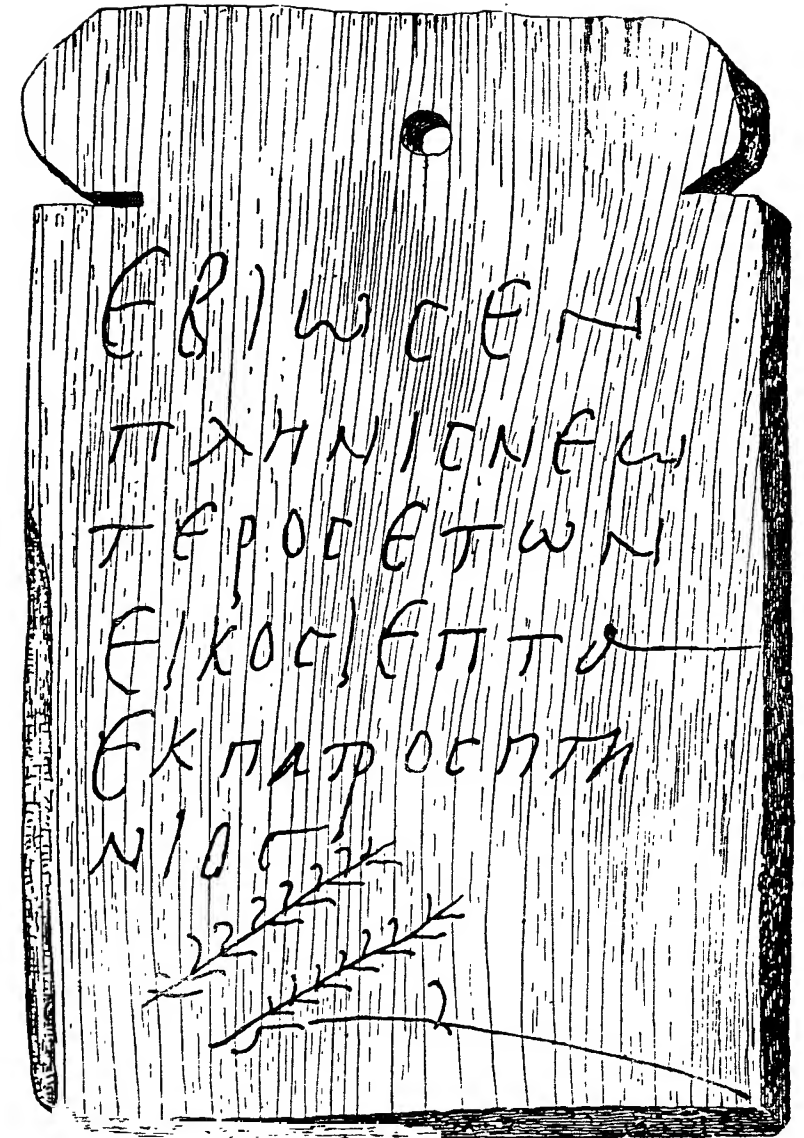 ЄΒΙωϹЄΝ
ΠΛΗΝΙϹΝЄω
ΤЄΡΟϹЄΤωΝ
ЄΙΚΟϹΙЄΠΤΑ
ЄΚΠΑΤΡΟϹΠΤΗ
ΝΙΟϹ